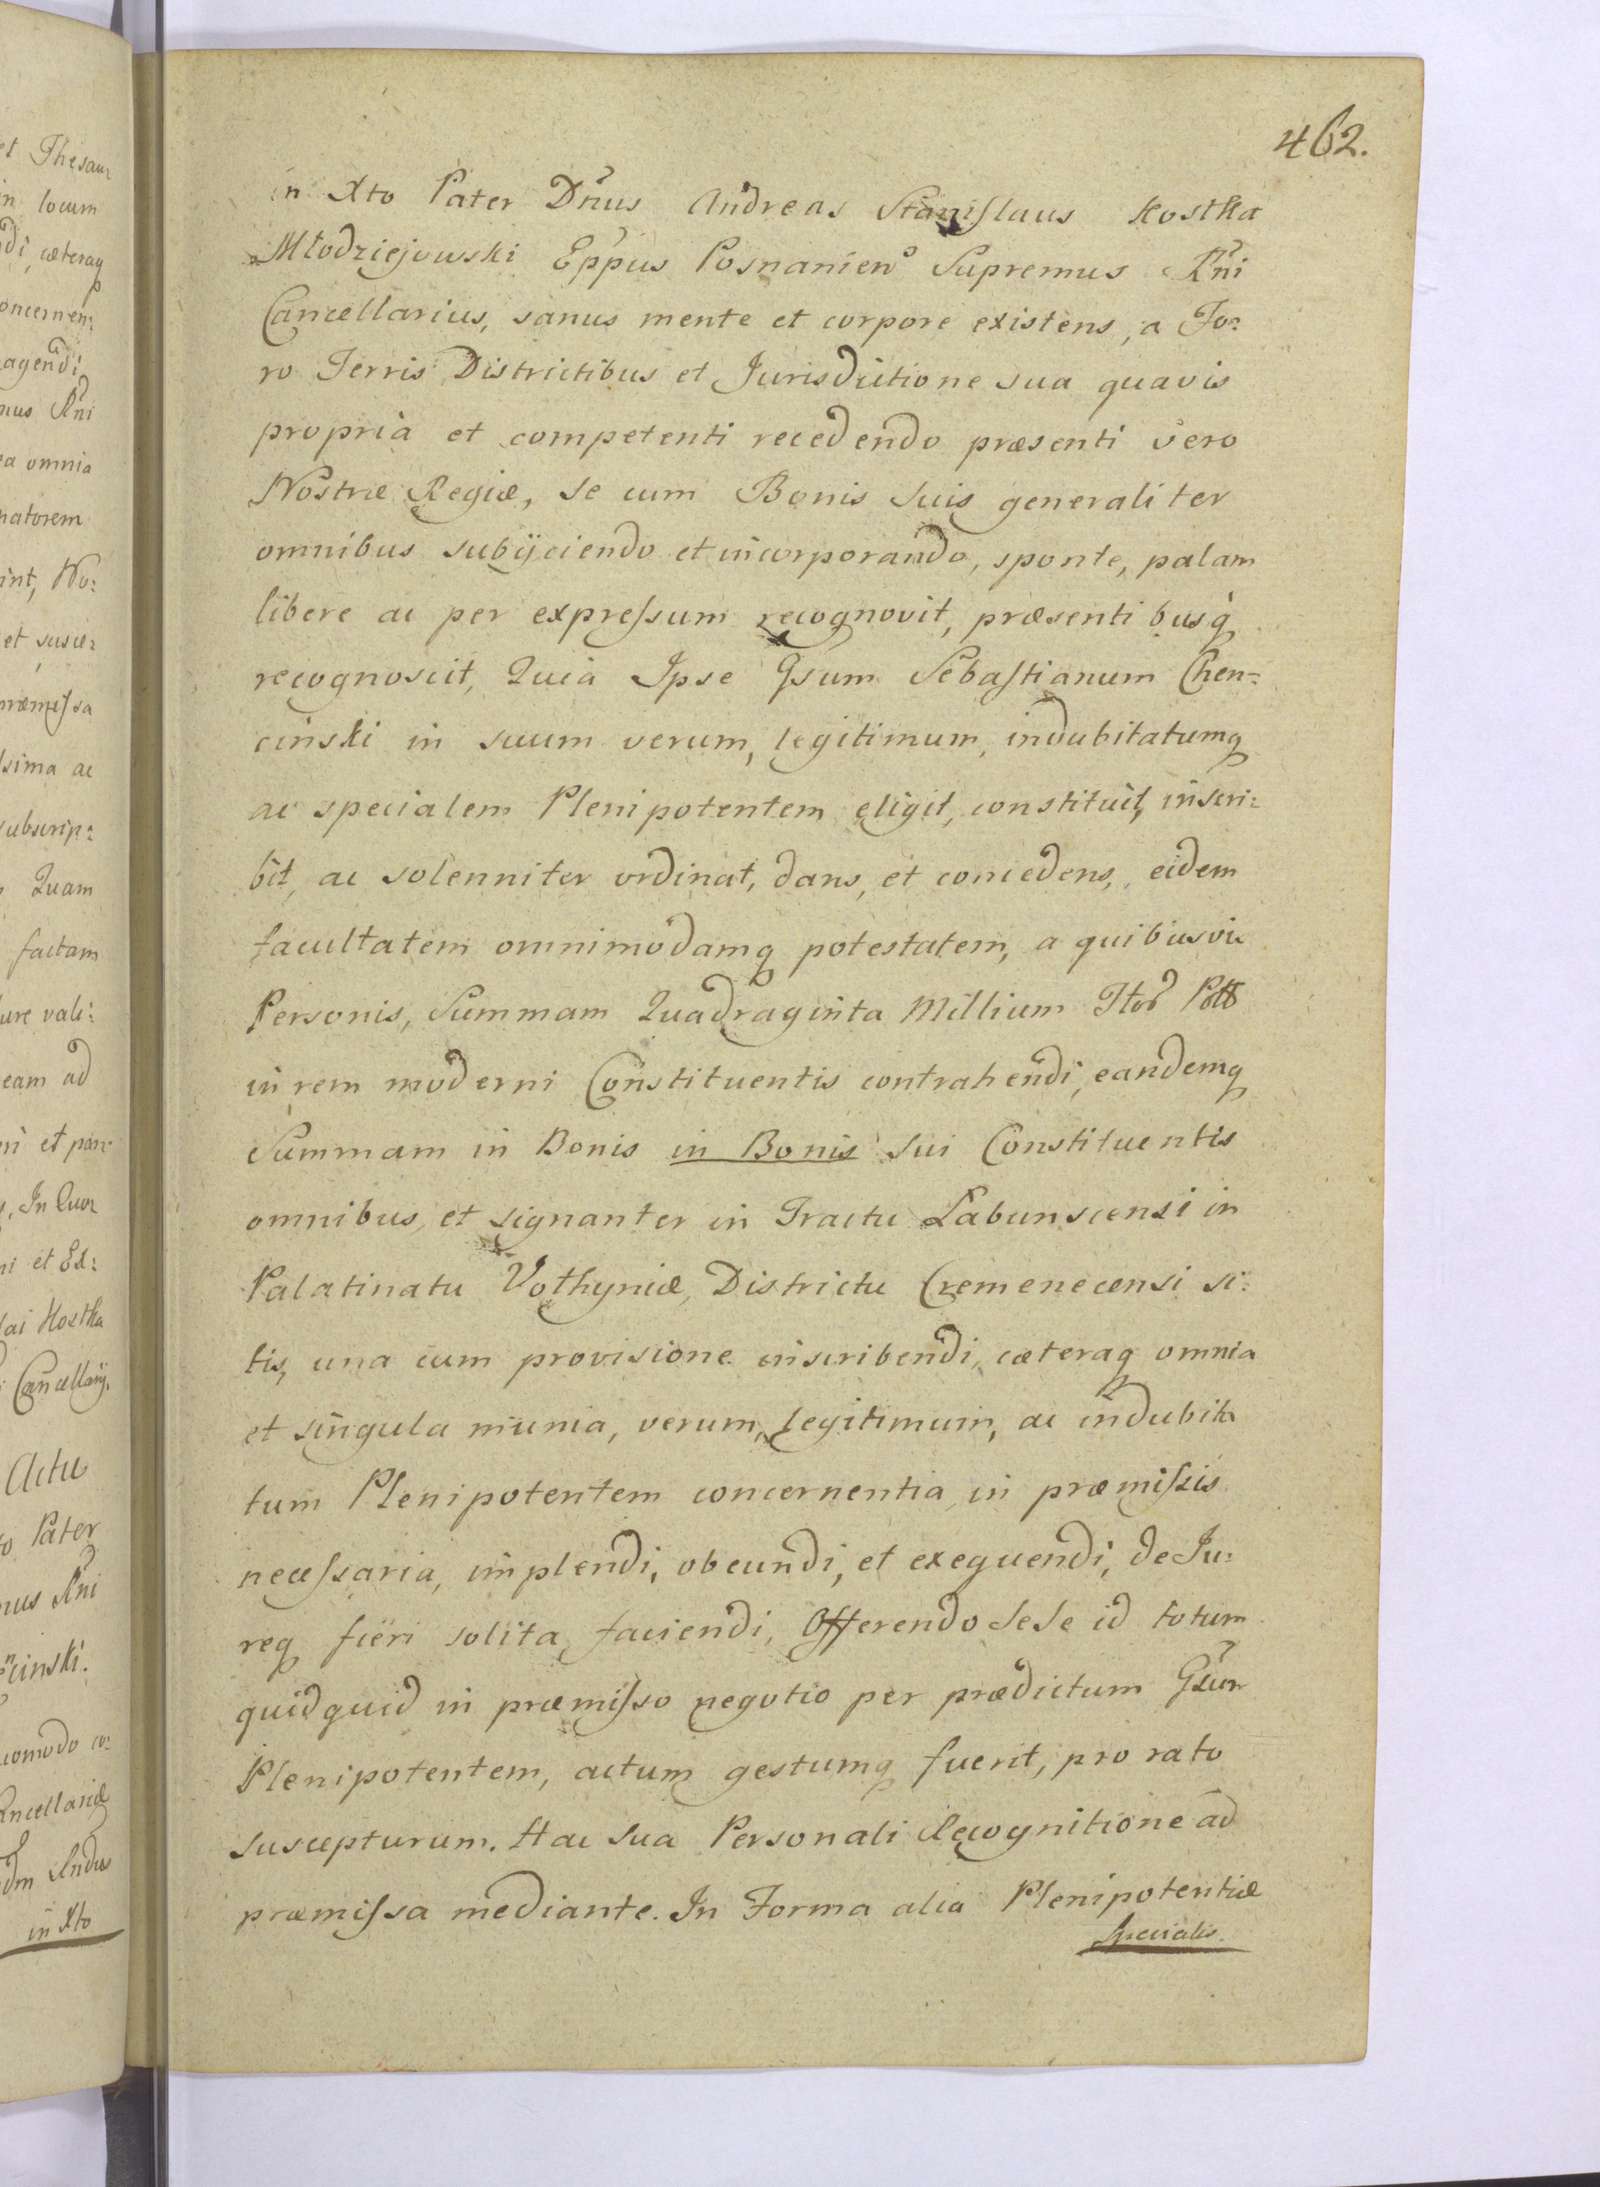 462.
in Xto Pater Dnus Andreas Stanislaus Kostka
Młodziejowski Eppus Posnanien Supremus Rni
Cancellarius, sanus mente et corpore existens, a Fo:
ro Terris Districtibus et Jurisdictione sua quavis
propria et competenti recedendo præsenti vero
Nostræ Regiæ, se cum Bonis suis generaliter
omnibus subijciendo et incorporando, sponte, palam
libere ac per expreſsum recognovit, præsentibusq
recognoscit, Quia Ipse Gsum Sebaſtianum Chen:
cinski in suum verum, legitimum, indubitatumq
ac specialem Plenipotentem eligit, constituit, inscri:
bit, ac solenniter ordinat, dans, et concedens, eidem
facultatem omnimodamq potestatem, a quibusvis
Personis, Summam Quadraginta Millium
in rem moderni Constituentis contrahendi, eandemq
Summam in Bonis in Bonis sui Constituentis
omnibus, et signanter in Tractu Łabunscensi in
Palatinatu Volhyniæ, Districtu Cremenecensi si:
tis, una cum provisione inscribendi, cæteraq omnia
et singula munia, verum, legitimum, ac indubita
tum Plenipotentem concernentia, in præmiſsis
neceſsaria, implendi, obeundi, et exequendi, de Ju:
req fieri solita, faciendi, Offerendo sese id totum
quidquid in præmiſso negotio per prædictum Gsum
Plenipotentem, actum gestumq fuerit, pro rato
suscepturum. Hac sua Personali Recognitione ad
præmiſsa mediante. In Forma alia Plenipotentiæ
Specialis.